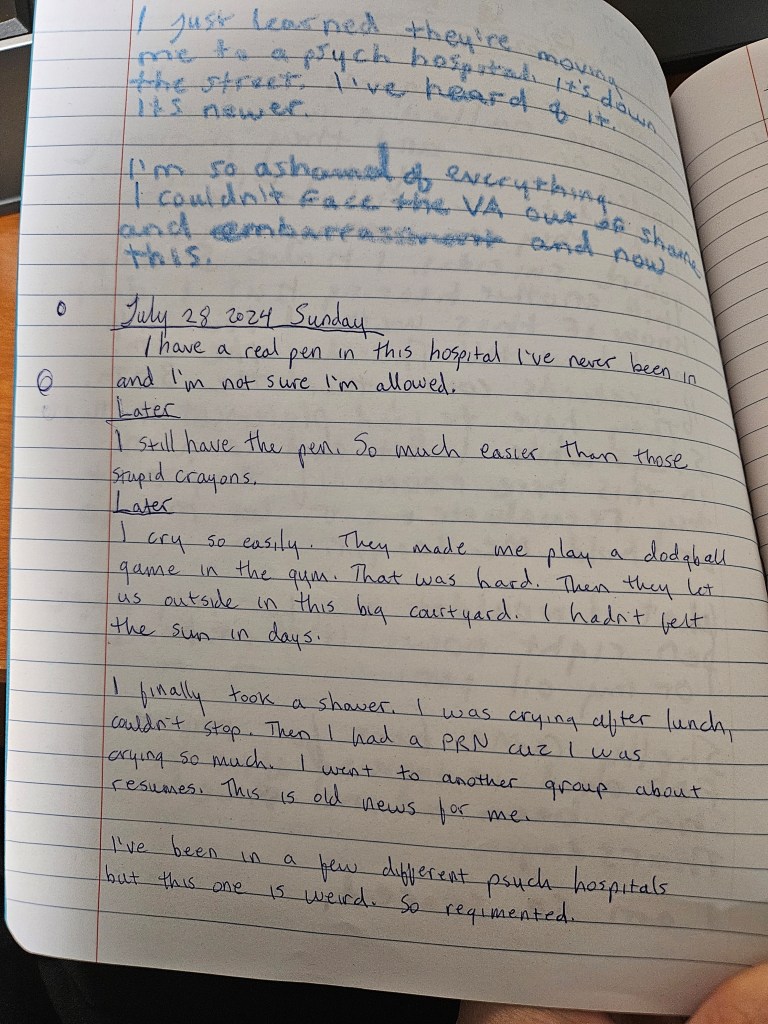 I just learned they're moving
me to a psych hospital. It's down
the street. I've heard of it.
It's newer.
I'm so ashamed of everything
I couldn't face the VA out of shame
and embarrassment and now
this.
July 28 2024 Sunday
I have a real pen in this hospital I've never been in
and I'm not sure I'm allowed.
Later
I still have the pen. So much easier than those
stupid crayons.
Later
I cry so easily. They made me play a dodgball
game in the gym. That was hard. Then they let
us outside in this big courtyard. I hadn't felt
the sun in days.
I finally took a shower. I was crying after lunch,
couldn't stop. Then I had a PRN cuz I was
crying so much. I went to another group about
resumes. This is old news for me.
I've been in a few different psych hospitals
but this one is weird. So regimented.